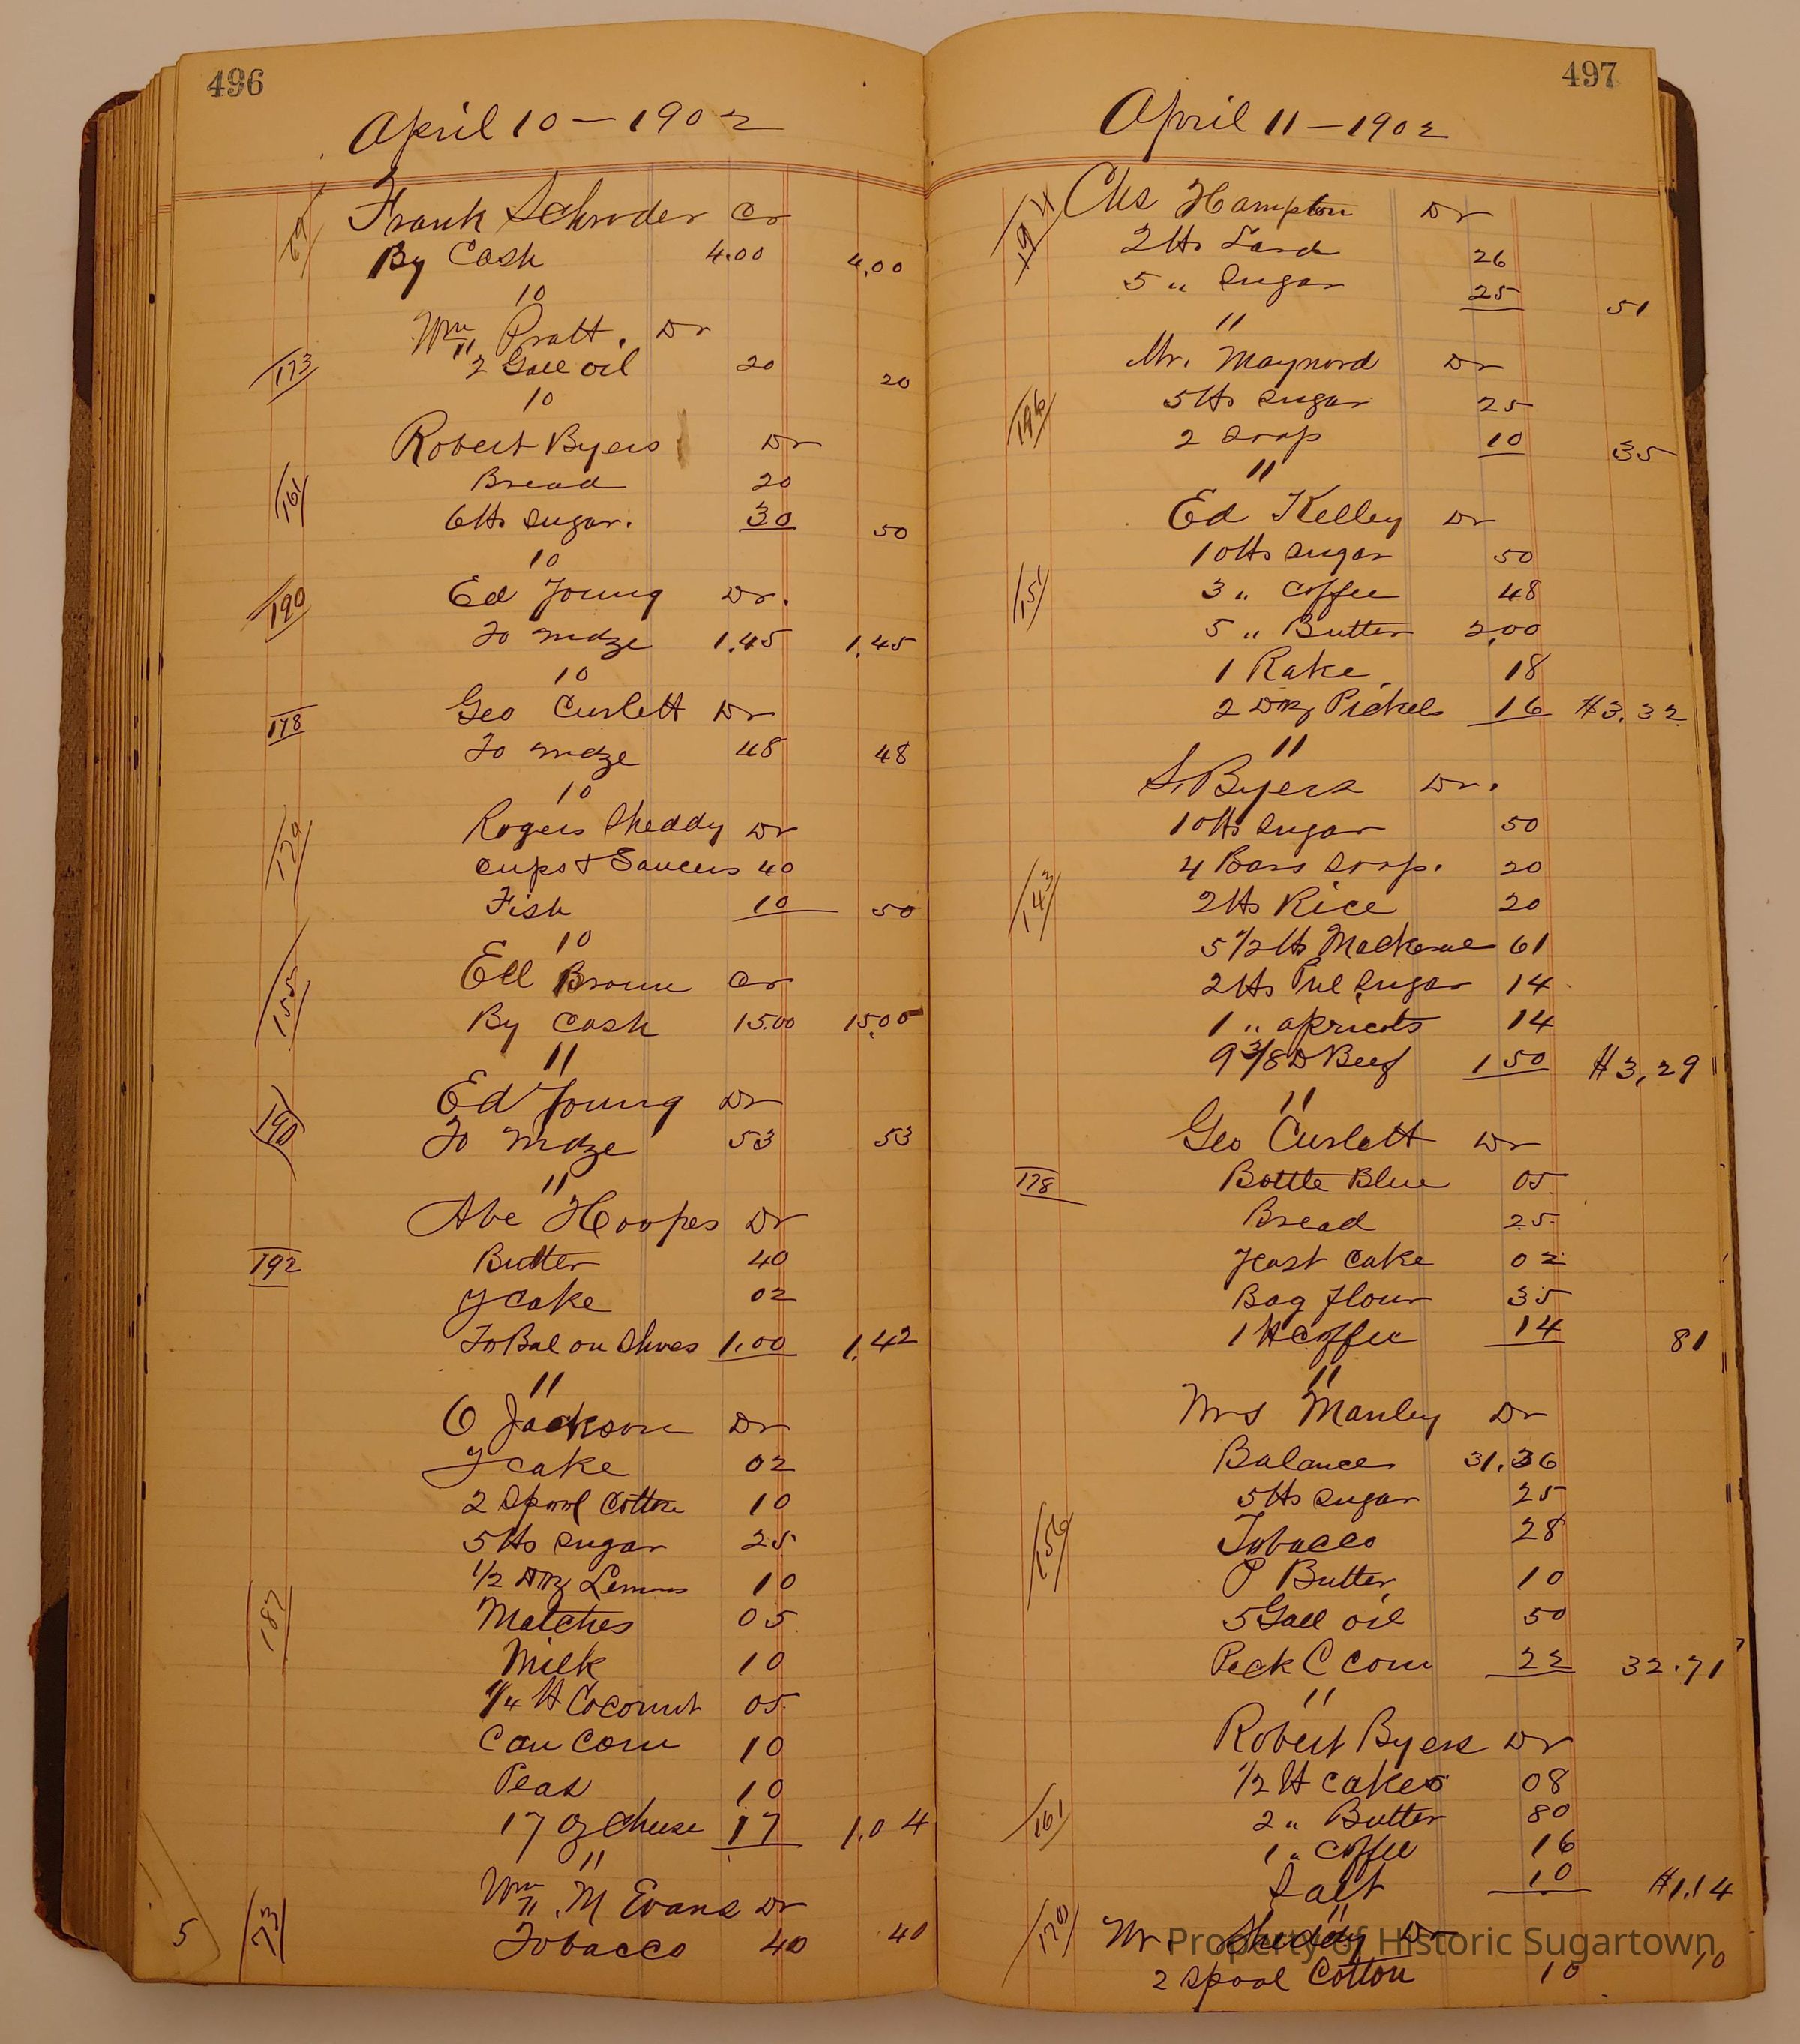 496
April 10 - 1902
69 Frank Schroder Cr
By Cash 4.00 4.00
10
Wm Pratt. Dr
173 2 Gall oil 20 20
10
Robert Byers Dr
Bread 20
161 6 lbs sugar. 30 50
10
190 Ed Young Dr.
To mdze 1.45 1.45
10
178 Geo Curlett Dr
To mdze 48 48
10
179 Rogers Sheddy Dr
cups & Saucers 40
Fish 10 50
10
155 Ell Brown Cr
By Cash 15.00 15.00
11
190 Ed Young Dr
To mdze 53 53
11
Abe Hoopes Dr
192 Butter 40
y cake 02
To Bal on Shoes 1.00 1.42
11
O Jackson Dr
y cake 02
2 Spool Cotton 10
5 lbs sugar 25
1/2 Doz Lemons 10
187 Matches 05
Milk 10
1/4 lb Coconut 05
Can Corn 10
Peas 10
17 oz cheese 17 1.04
11
Wm M Evans Dr
5 73 Tobacco 40 40
497
April 11 - 1902
194 Chs Hampton Dr
2 lbs Lard 26
5 " sugar 25 51
11
Mr. Maynord Dr
196 5 lbs sugar 25
2 soap 10 35
11
Ed Kelley Dr
10 lbs sugar 50
151 3 " coffee 48
5 " Butter 2.00
1 Rake 18
2 Doz Pickels 16 $3.32
11
S. Byers Dr.
10 lbs sugar 50
4 Bars soap. 20
143 2 lbs Rice 20
5 1/2 lbs Mackeral 61
2 lbs Pul sugar 14
1 " apricots 14
9 3/8 D Beef 1 50 $3,29
11
Geo Curlett Dr
178 Bottle Blue 05
Bread 25
Yeast Cake 02
Bag flour 35
1 lb coffee 14 81
11
Mrs Manley Dr
Balance 31.36
5 lbs sugar 25
156 Tobacco 28
P Butter 10
5 Gall oil 50
Peck C Corn 22 32.71
11
Robert Byers Dr
1/2 lb cakes 08
161 2 " Butter 80
1 " coffee 16
Salt 10 $1.14
11
170 Mr. Sheddy Dr
2 spool Cotton 10 10
Property of Historic Sugartown